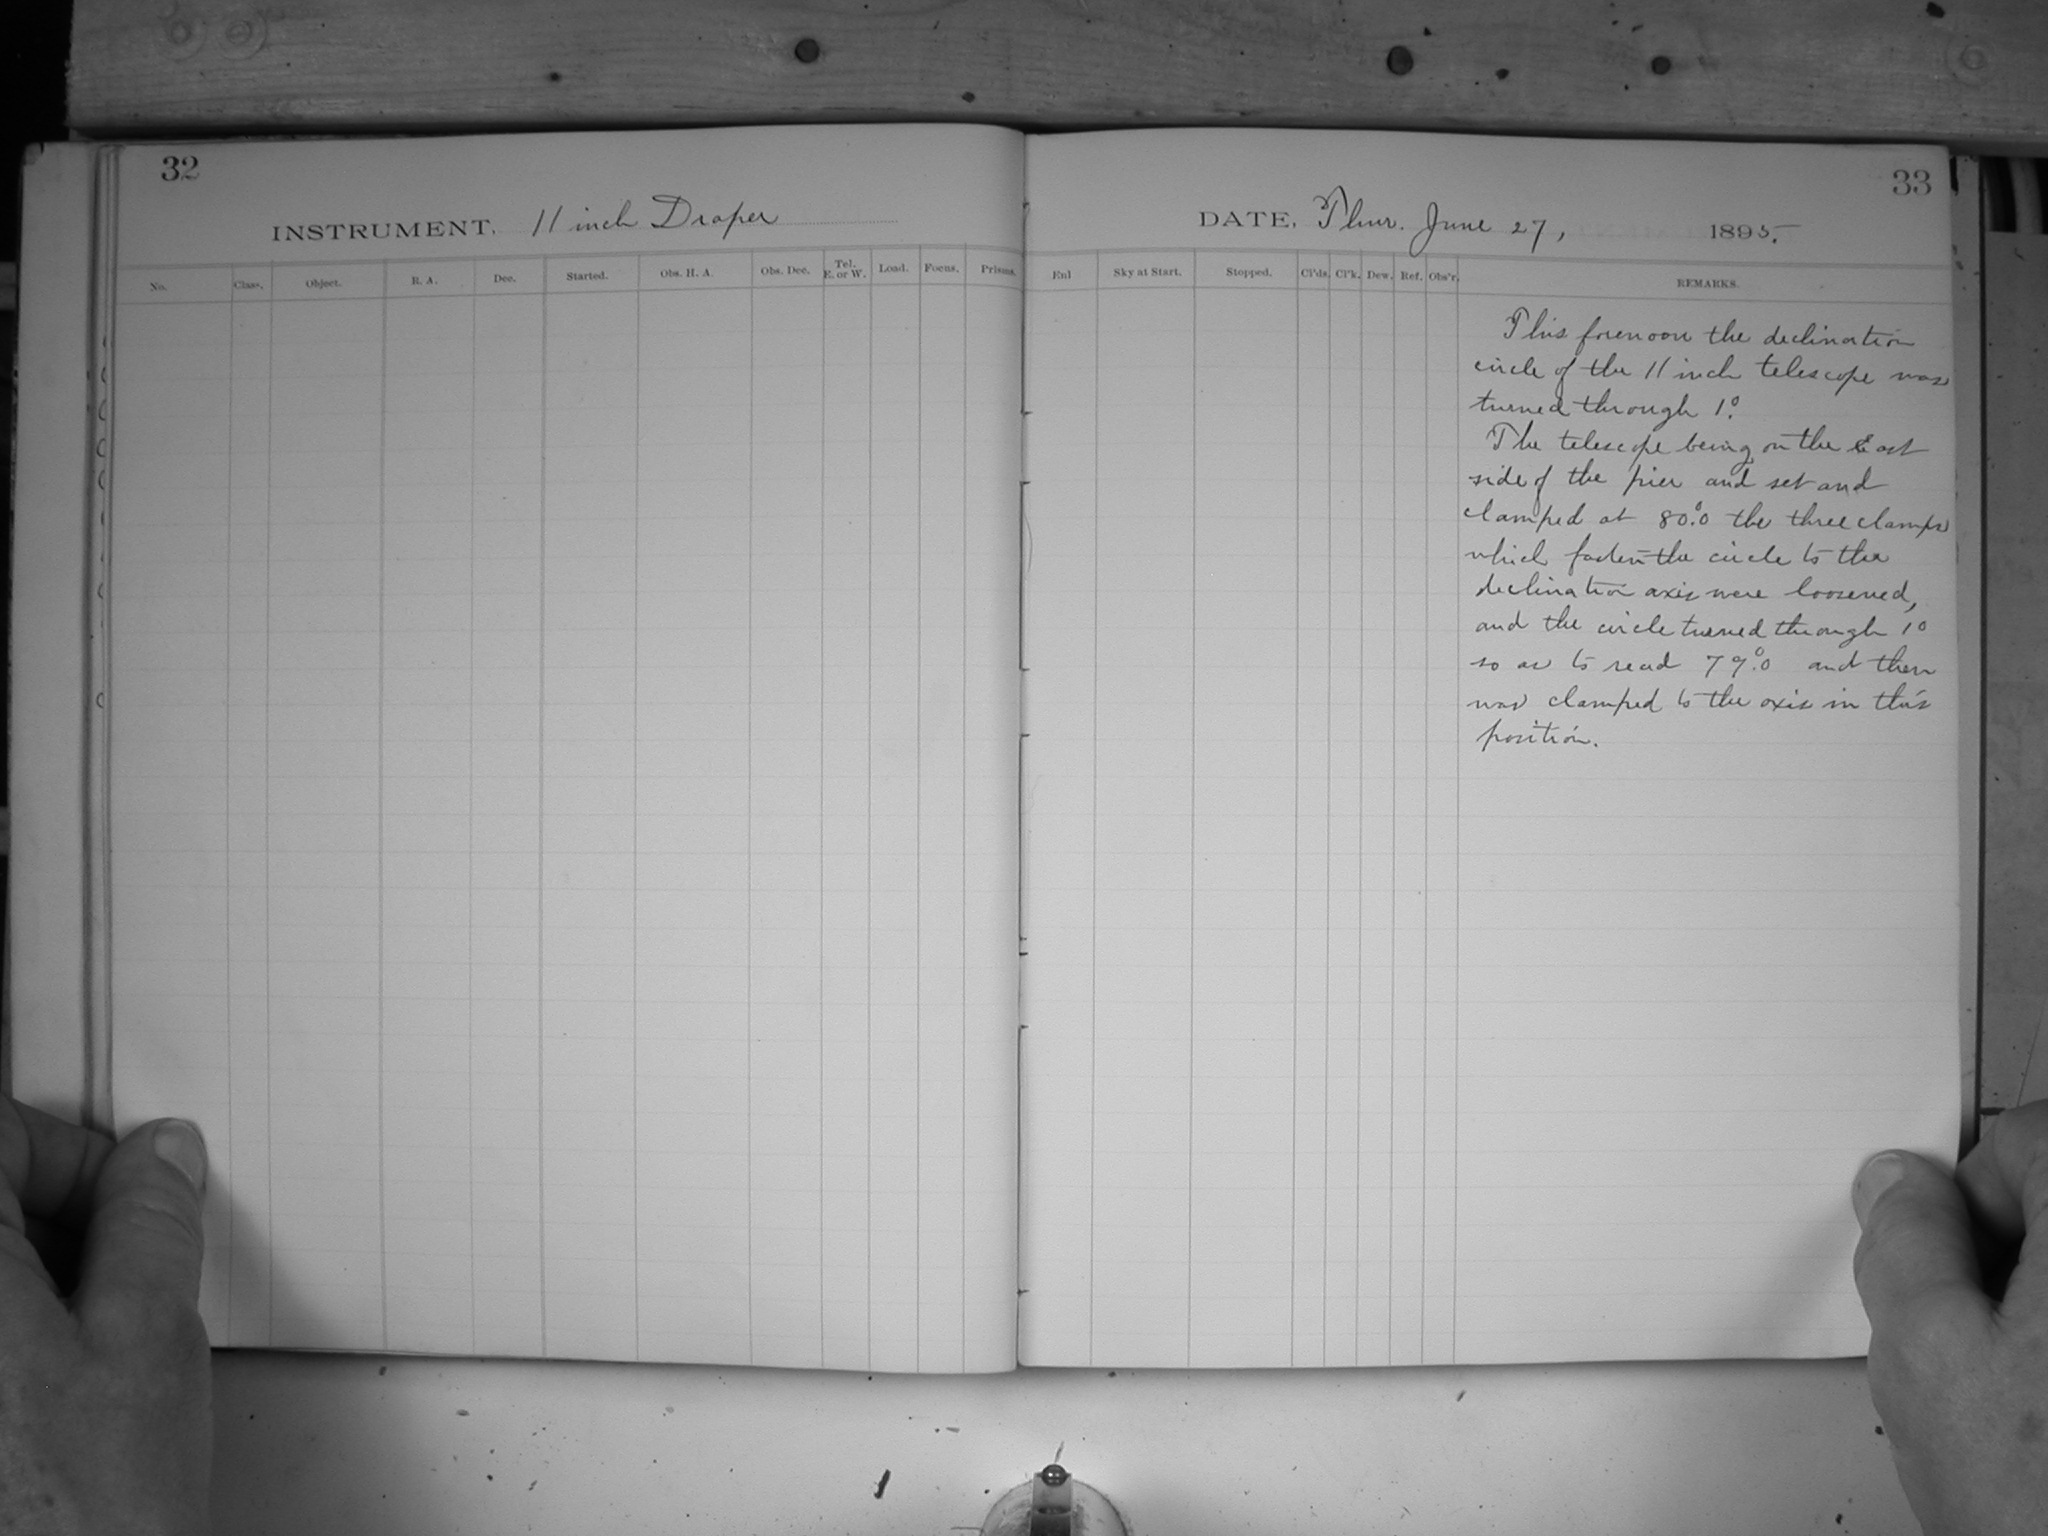 32
INSTRUMENT. 11 inch Draper
No. Class. Object. R. A. Dec. Started. Obs. H. A. Obs. Dec. Tel. E. or W. Load. Focus. Prisms.
33
DATE. Thur. June 27, 1895.
Exl Sky at Start. Stopped. Cl'ds. Cl'k. Dew. Ref. Obs'r. REMARKS.
This forenoon the declination
circle of the 11 inch telescope was
turned through 1°.
The telescope being on the East
side of the pier and set and
clamped at 80°.0 the three clamps
which fasten the circle to the
declination axis were loosened,
and the circle turned through 1°
so as to read 79°.0 and then
was clamped to the axis in this
position.